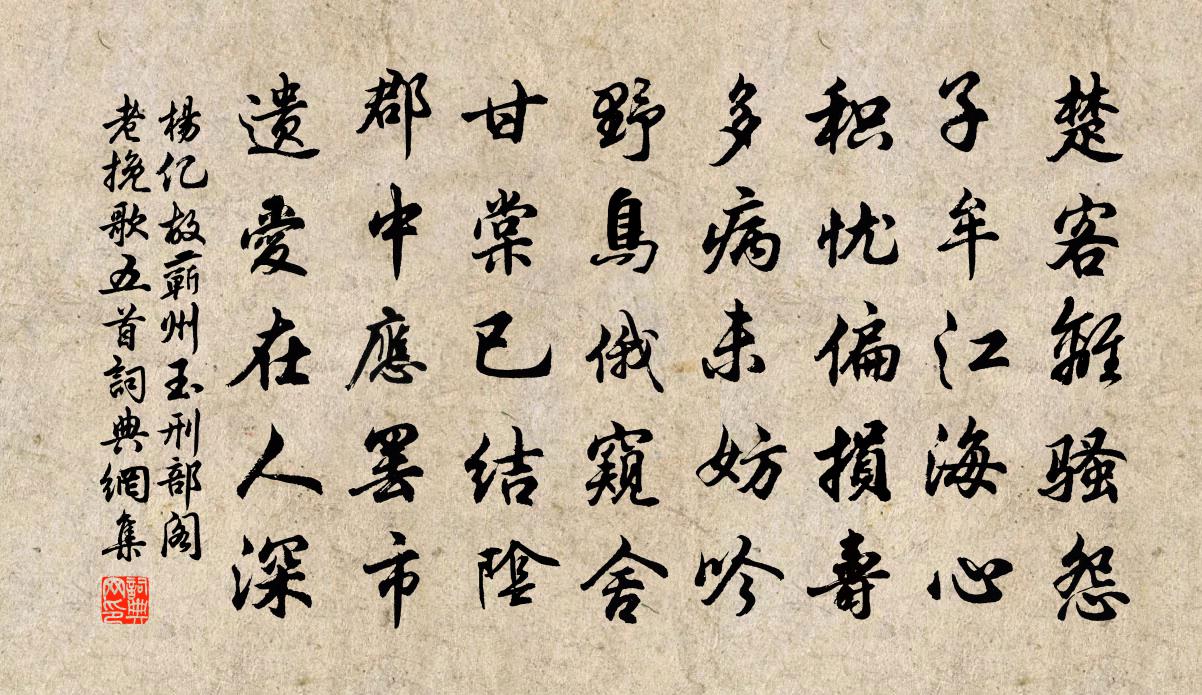 楚客離骚怨
子牟江海心
积忧偏損壽
多病未妨吟
野鳥俄窺舍
甘棠已结陰
郡中應罢市
遗愛在人深
楊亿故蘄州玉刑部阁
老挽歌五首詞典網集
詞典網印